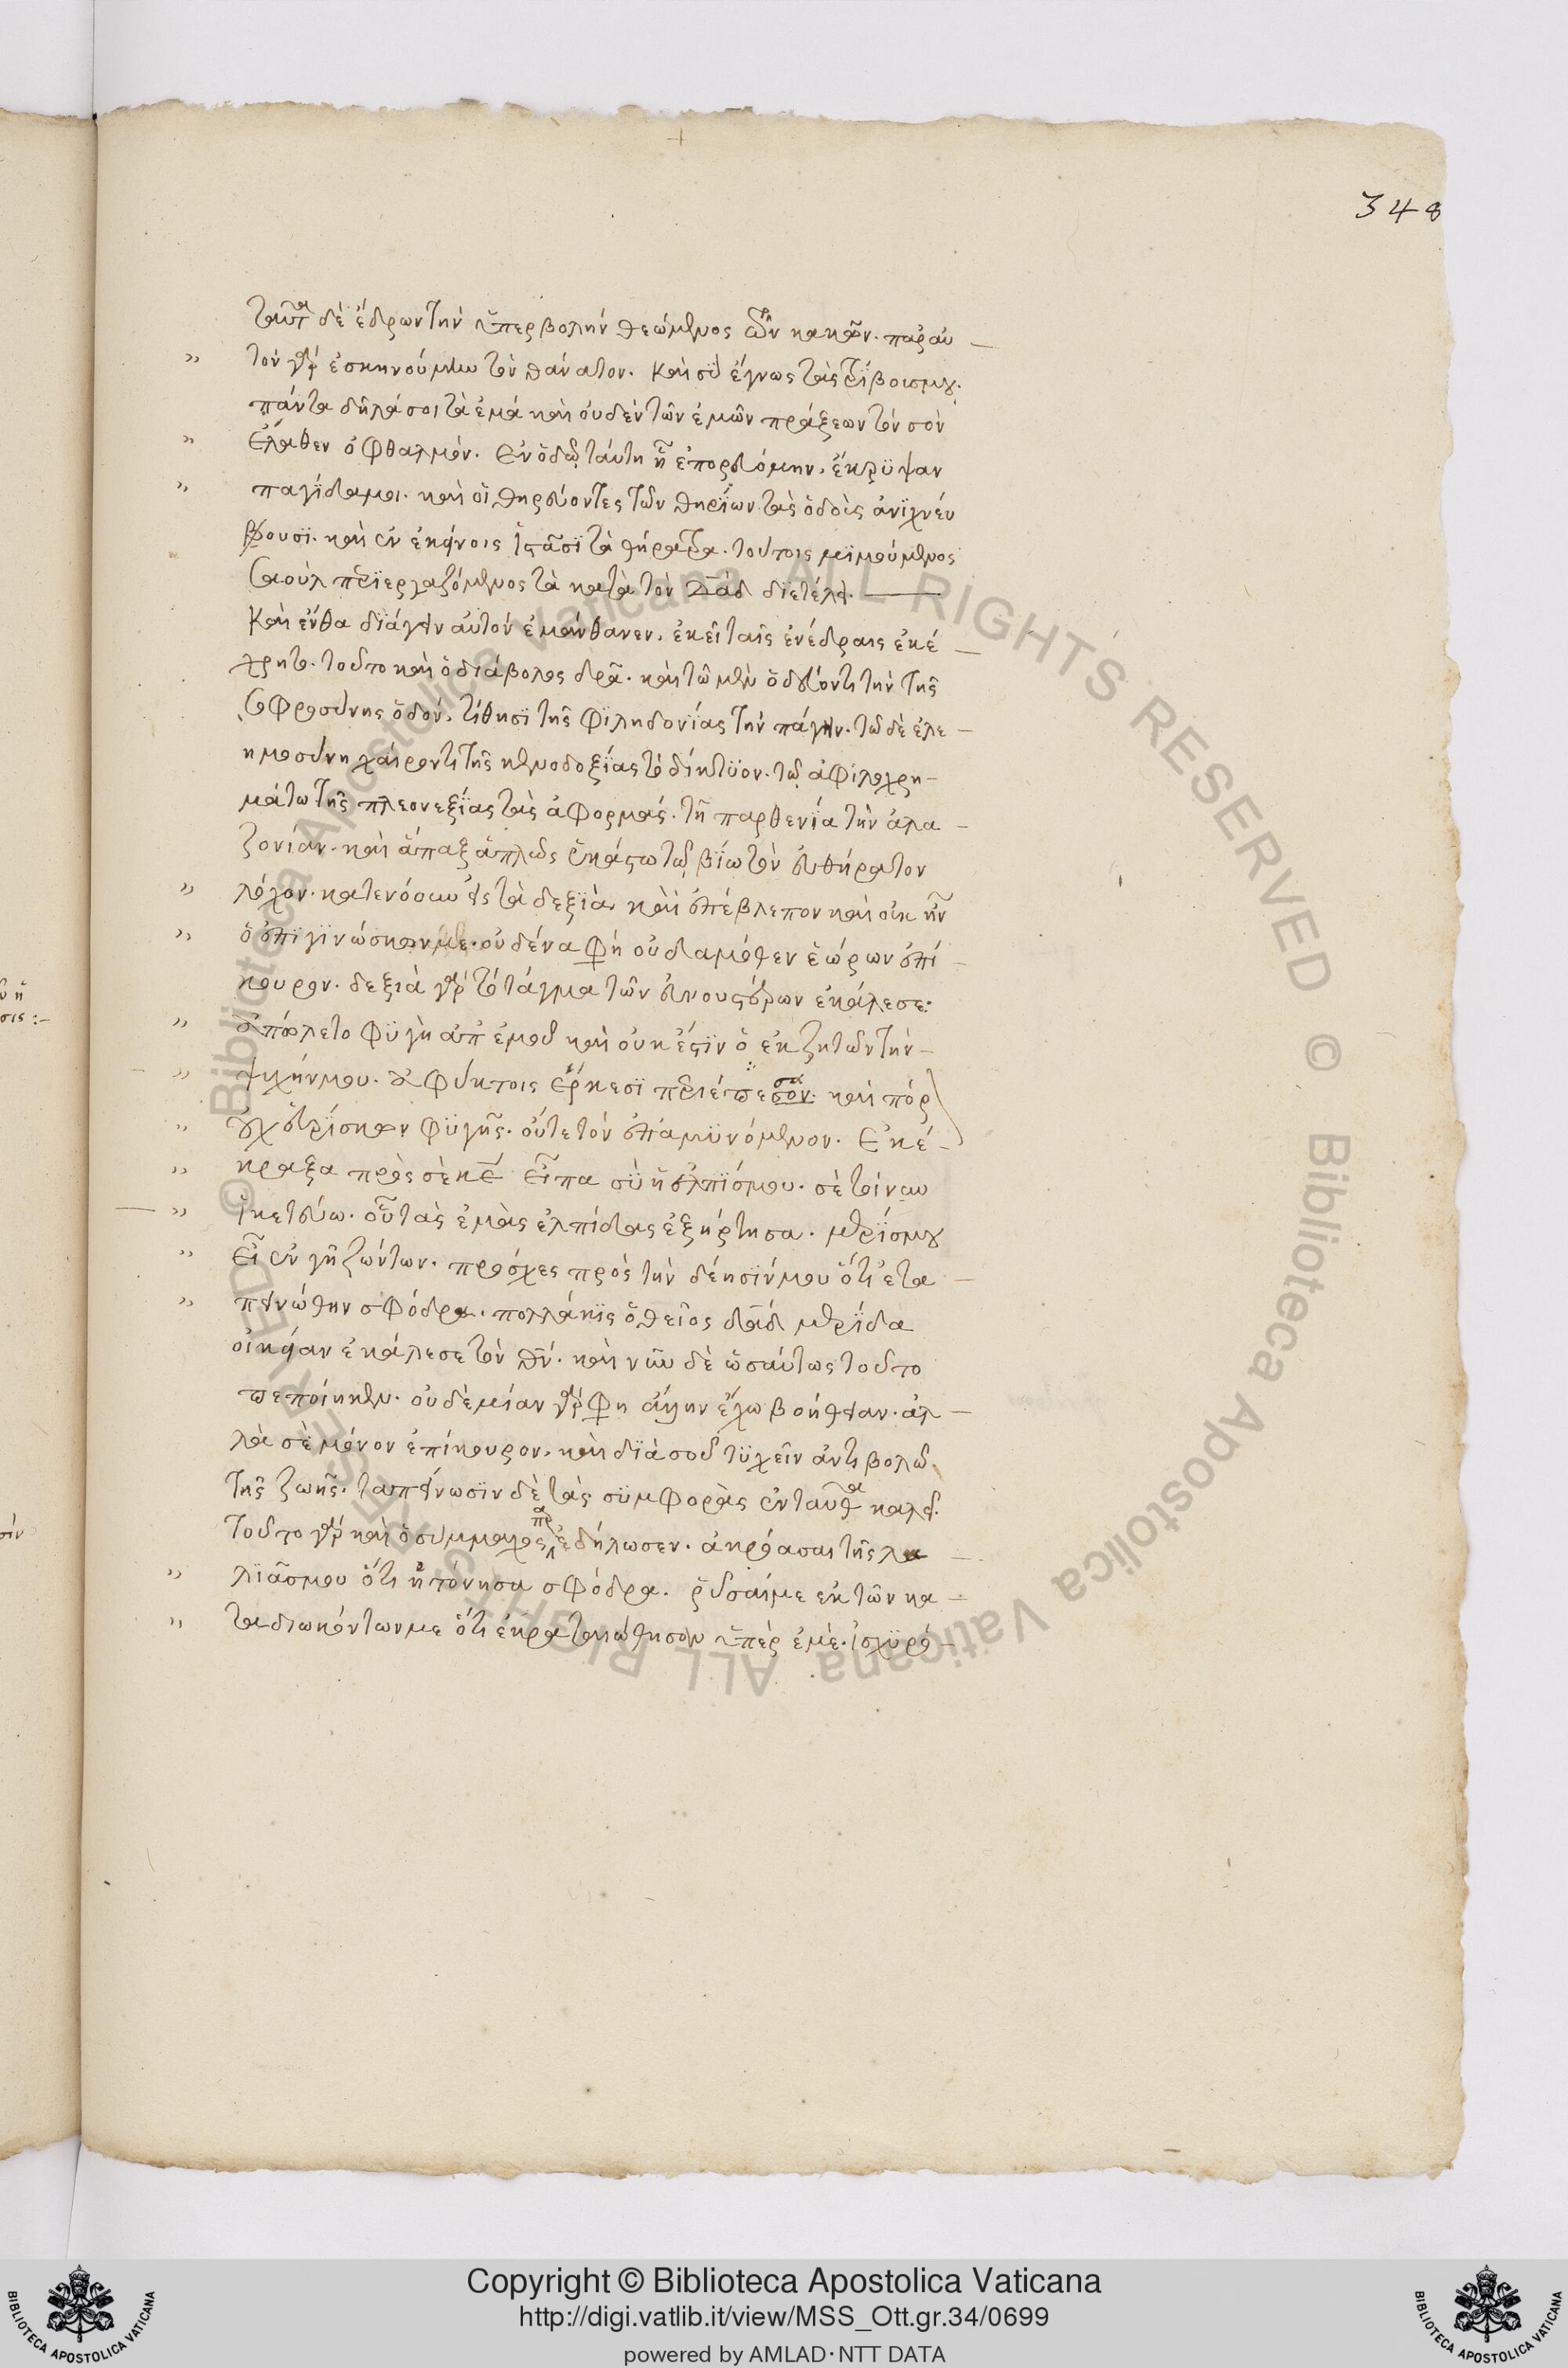 348
ταῦτα δὲ ἔδρων τὴν ὑπερβολὴν θεώμενος τῶν κακῶν. παρ' αὐ –
» τὸν γὰρ ἐσκηνούμην τὸν θάνατον. Καὶ σὺ ἔγνως τὰς τρίβους μου.
πάντα δῆλά σοι τὰ ἐμὰ καὶ οὐδὲν τῶν ἐμῶν πράξεων τὸν σὸν
» ἔλαθεν ὀφθαλμόν. Ἐν ὁδῷ ταύτη ᾗ ἐπορευόμην, ἔκρϋψαν
» παγίδα μοι. καὶ οἱ θηρεύοντες τῶν θηρίων τὰς ὁδοὺς ἀνϊχνεύ
ουσϊ. καὶ ἐν ἐκείνοις ἱστᾶσϊ τὰ θήρατρα. τούτοις μϊμούμενος
Σαοὺλ περϊεργαζόμενος τὰ κατὰ τὸν Δαδ διετέλει.
Καὶ ἔνθα διάγειν αὐτὸν ἐμάνθανεν, ἐκεῖ ταῖς ἐνέδραις ἐκέ –
χρητο. τοῦτο καὶ ὁ διάβολος δρᾶ. καὶ τῶ μὲν ὁδεύοντι τὴν τῆς
σωφροσύνης ὁδόν, τίθησϊ τῆς φϊληδονίας τὴν πάγην. τῶ δὲ ἐλε –
ημοσύνη χαίροντι τῆς κενοδοξίας τὸ δίκτϋον. τῷ ἀφιλοχρη –
μάτω τῆς πλεονεξίας τὰς ἀφορμάς. τῆ παρθενία τὴν ἀλα –
ζονίαν. καὶ ἅπαξ ἁπλῶς ἑκάστω τῷ βίω τὸν εὐθήρατον
» λόχον. κατενόουν εἰς τὰ δεξιὰ καὶ ἐπέβλεπον καὶ οὐκ ἦν
» ὁ ἐπιγϊνώσκων με. οὐδένα φη οὐδαμόθεν ἑώρων ἐπί –
κουρον. δεξιὰ γὰρ τὸ τάγμα τῶν εὐνουστέρων ἐκάλεσε.
» ἀπώλετο φϋγὴ ἀπ' ἐμοῦ καὶ οὐκ ἔστϊν ὁ ἐκζητῶν τὴν –
» ψυχήν μου. ἀφύκτοις ἕρκεσϊ περιέπεσον. καὶ πόρ
» οὐχ εὑρίσκων φϋγῆς. οὔτε τὸν ἐπαμϋνόμενον. Ἐκέ –
» κραξα πρὸς σὲ κε εἶπα σὺ ἡ ἐλπίς μου. σὲ τοίνυν
» ἱκετεύω. οὗ τὰς ἐμὰς ἐλπίδας ἐξήρτησα. μερίς μου
» εἶ ἐν γῆ ζώντων. πρόσχες πρὸς τὴν δέησίν μου ὅτι ἐτα –
» πεινώθην σφόδρα. πολλάκϊς ὁ θεῖος δαδ μερίδα
οἰκείαν ἐκάλεσε τὸν θν. καὶ νῦν δὲ ὡσαύτως τοῦτο
πεποίηκεν. οὐδεμίαν γὰρ φη ἄλλην ἔχω βοήθειαν. ἀλ –
λὰ σὲ μόνον ἐπίκουρον. καὶ δϊὰ σοῦ τϋχεῖν ἀντιβολῶ
τῆς ζωῆς. ταπείνωσϊν δὲ τὰς σϋμφορὰς ἐνταῦθα καλεῖ.
τοῦτο γὰρ καὶ ὁ σύμμαχος ἐδήλωσεν. ἀκρόασαι τῆς λα –
» λϊᾶς μου ὅτι ἠτόνησα σφόδρα. ῥῦσαί με ἐκ τῶν κα –
» ταδιωκόντων με ὅτι ἐκραταιώθησαν ὑπὲρ ἐμέ. ἰσχϋρό –
Copyright © Biblioteca Apostolica Vaticana
http://digi.vatlib.it/view/MSS_Ott.gr.34/0699
powered by AMLAD·NTT DATA